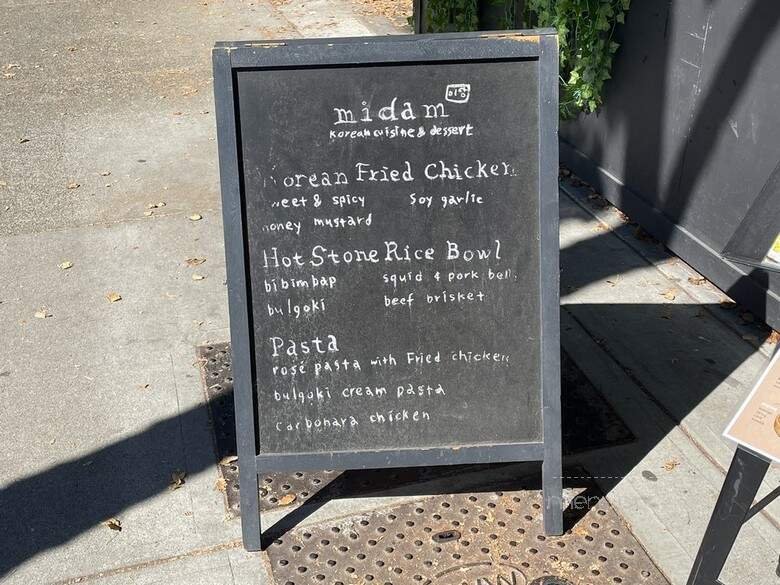 midam
미담
Korean cuisine & dessert
Korean Fried Chicken
sweet & spicy soy garlic
honey mustard
Hot Stone Rice Bowl
bibimbap squid & pork bell
bulgoki beef brisket
Pasta
rosé pasta with Fried chicken
bulgoki cream pasta
carbonara chicken